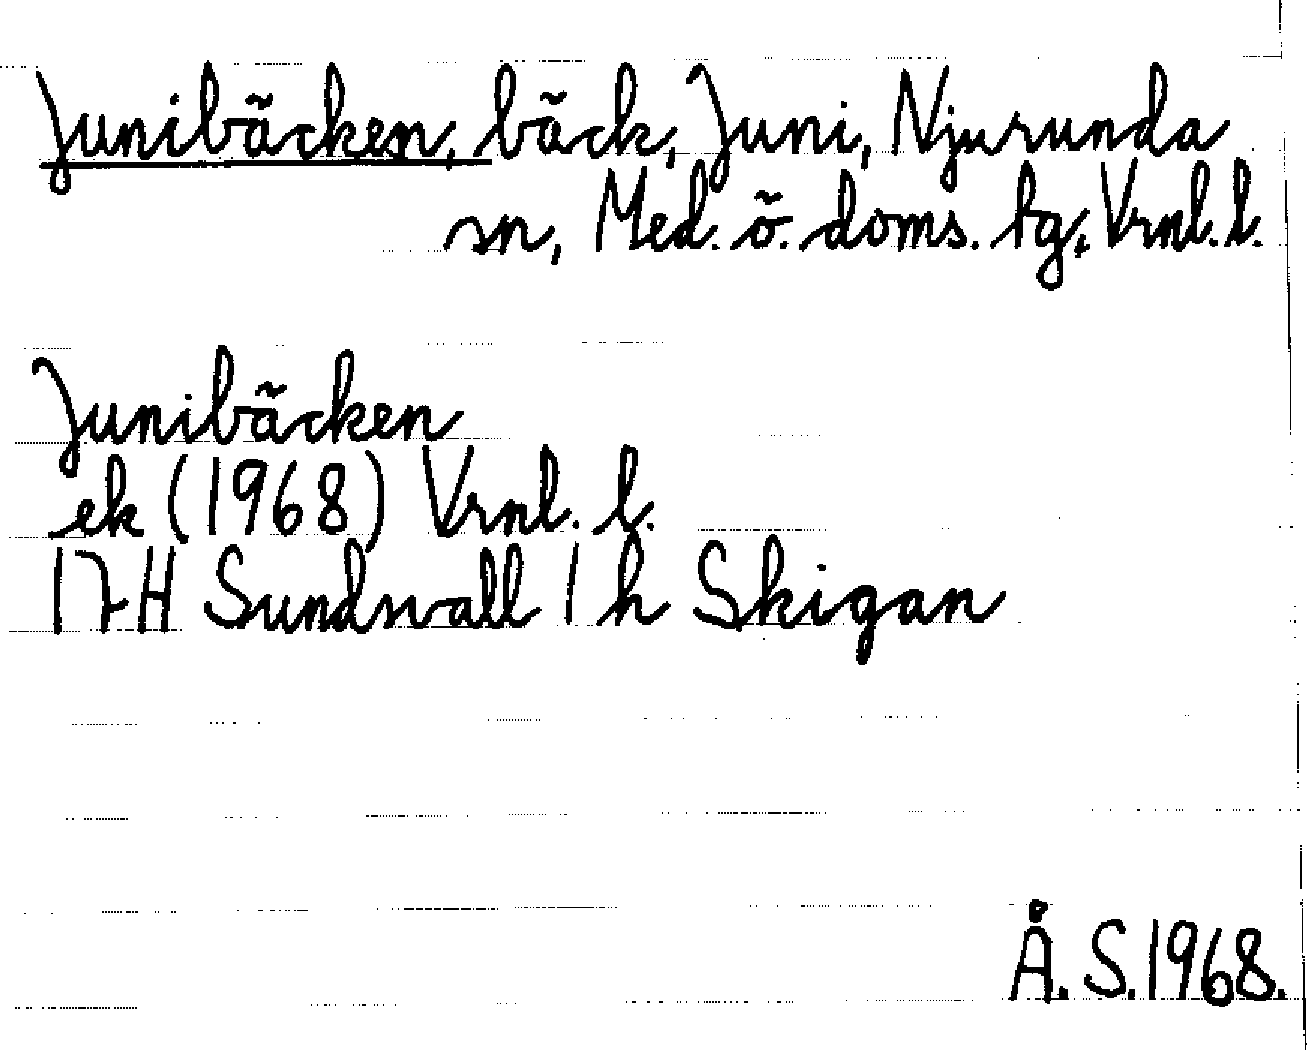 Junibäcken, bäck, Juni, Njurunda
sn, Med. ö. doms. tg, Vrnl. l.
Junibäcken
ek (1968) Vrnl. l.
17H Sundsvall 1 h Skigan
Å. S. 1968.